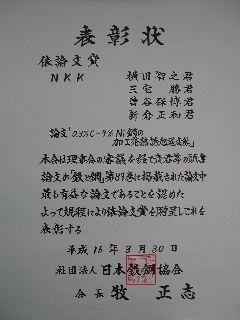 表彰状
俵論文賞
NKK 横田智之君
三宅 勝君
曽谷保博君
新倉正和君
論文「0.3%C-9%Ni鋼の
加工発熱誘起逆変態」
本会は理事会の審議を経て貴君等の所事
論文が「鉄と鋼」第89巻に掲載された論文中
最も有益な論文であることを認めた
よって規程により俵論文賞を贈呈しこれを
表彰する
平成16年3月30日
社団法人 日本鉄鋼協会
会長 牧 正志